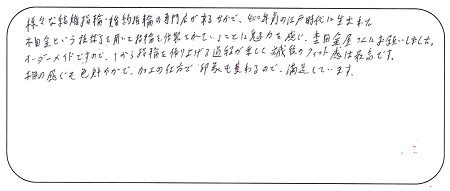 様々な結婚指輪・婚約指輪の専門店が有る中で、400年前の江戸時代に生まれた
木目金という技術を用いて指輪を作製されていることに魅力を感じ、杢目金屋さんにお願いしました。
オーダーメイドですので、1から指輪を作り上げる過程が楽しく、完成後のフィット感は最高です。
木目の感じも色鮮やかで、加工の仕方で印象も変わるので、満足しています。